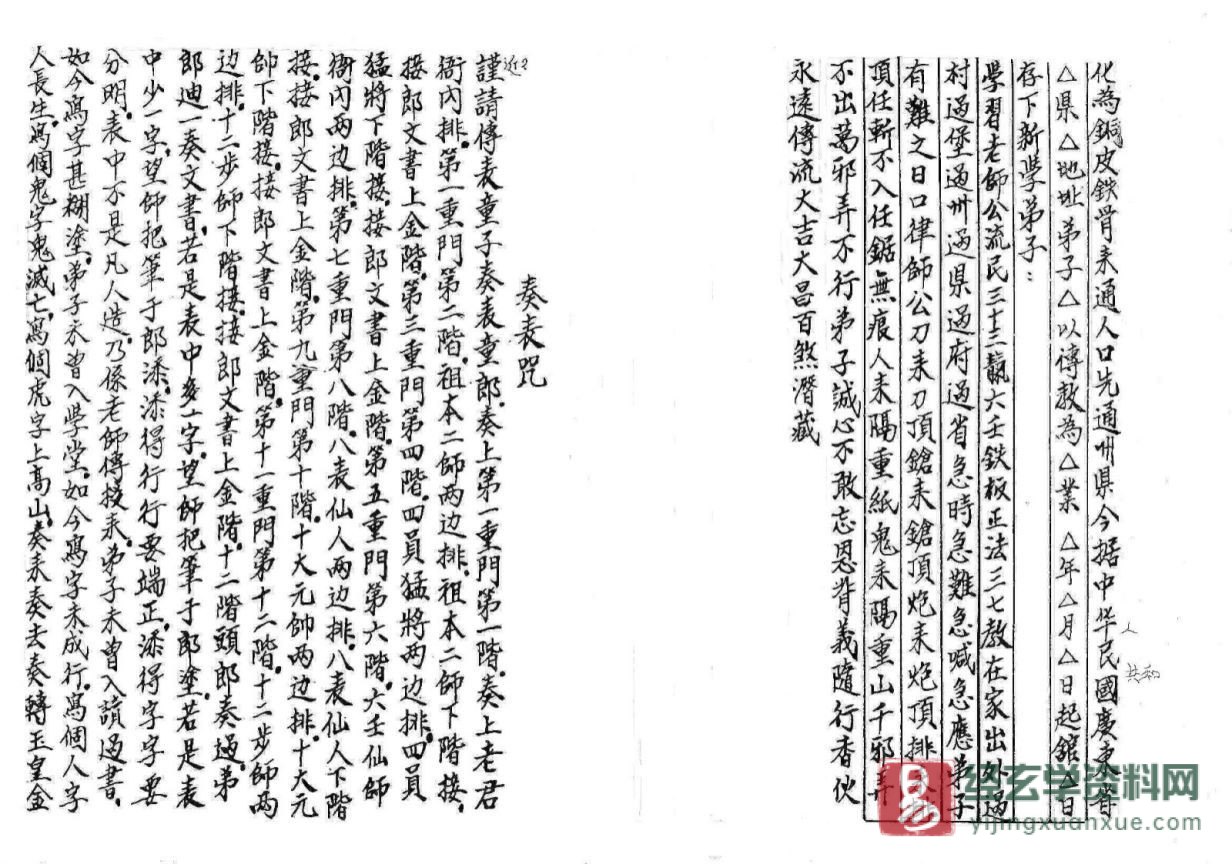 化為銅皮鉄骨耒通人口先通州県今据中华民國廣東省
人 共和
△県△地址弟子△以傳教為△業 △年△月△日起舘△日
存下新学弟子：
學習老師公流民三十三 六壬鉄板正法三七教在家出外過
村過堡過州過県過府過省急時急難急喊急應弟子
有難之日口律師公刀耒刀頂鎗耒鎗頂炮耒炮頂排
頂任斬不入任鋸無痕人耒隔重紙鬼耒隔重山千邪弄
不出萬邪弄不行弟子誠心不敢忘恩背義隨行香伙
永遠傳流大吉大昌百煞潛藏
奏表咒
謹請傳表童子奏表童郎。奏上第一重門第一階。奏上老君
衙内排。第一重門第二階。祖本二師两边排。祖本二師下階接。
接郎文書上金階。第三重門第四階。四員猛將两边排。四員
猛將下階接。接郎文書上金階。第五重門第六階。六壬仙師
衙内两边排。第七重門第八階。八表仙人两边排。八表仙人下階
接。接郎文書上金階。第九重門第十階。十大元帥两边排。十大元
帥下階接。接郎文書上金階。第十一重門第十二階。十二步師两
边排。十二步師下階接。接郎文書上金階。十二階頭郎奏過。弟
郎迪一奏文書。若是表中多一字。望師把筆于郎塗。若是表
中少一字。望師把筆于郎添。添得行行要端正。添得字字要
分明。表中不是凡人造。乃係老師傳授耒。弟子未曾入讀過書。
如今寫字甚糊塗。弟子未曾入學堂。如今寫字未成行。寫個人字
人長生。寫個鬼字鬼滅亡。寫個虎字上高山。奏耒奏去奏轉玉皇金
易
经玄学资料网
yijingxuanxue.com